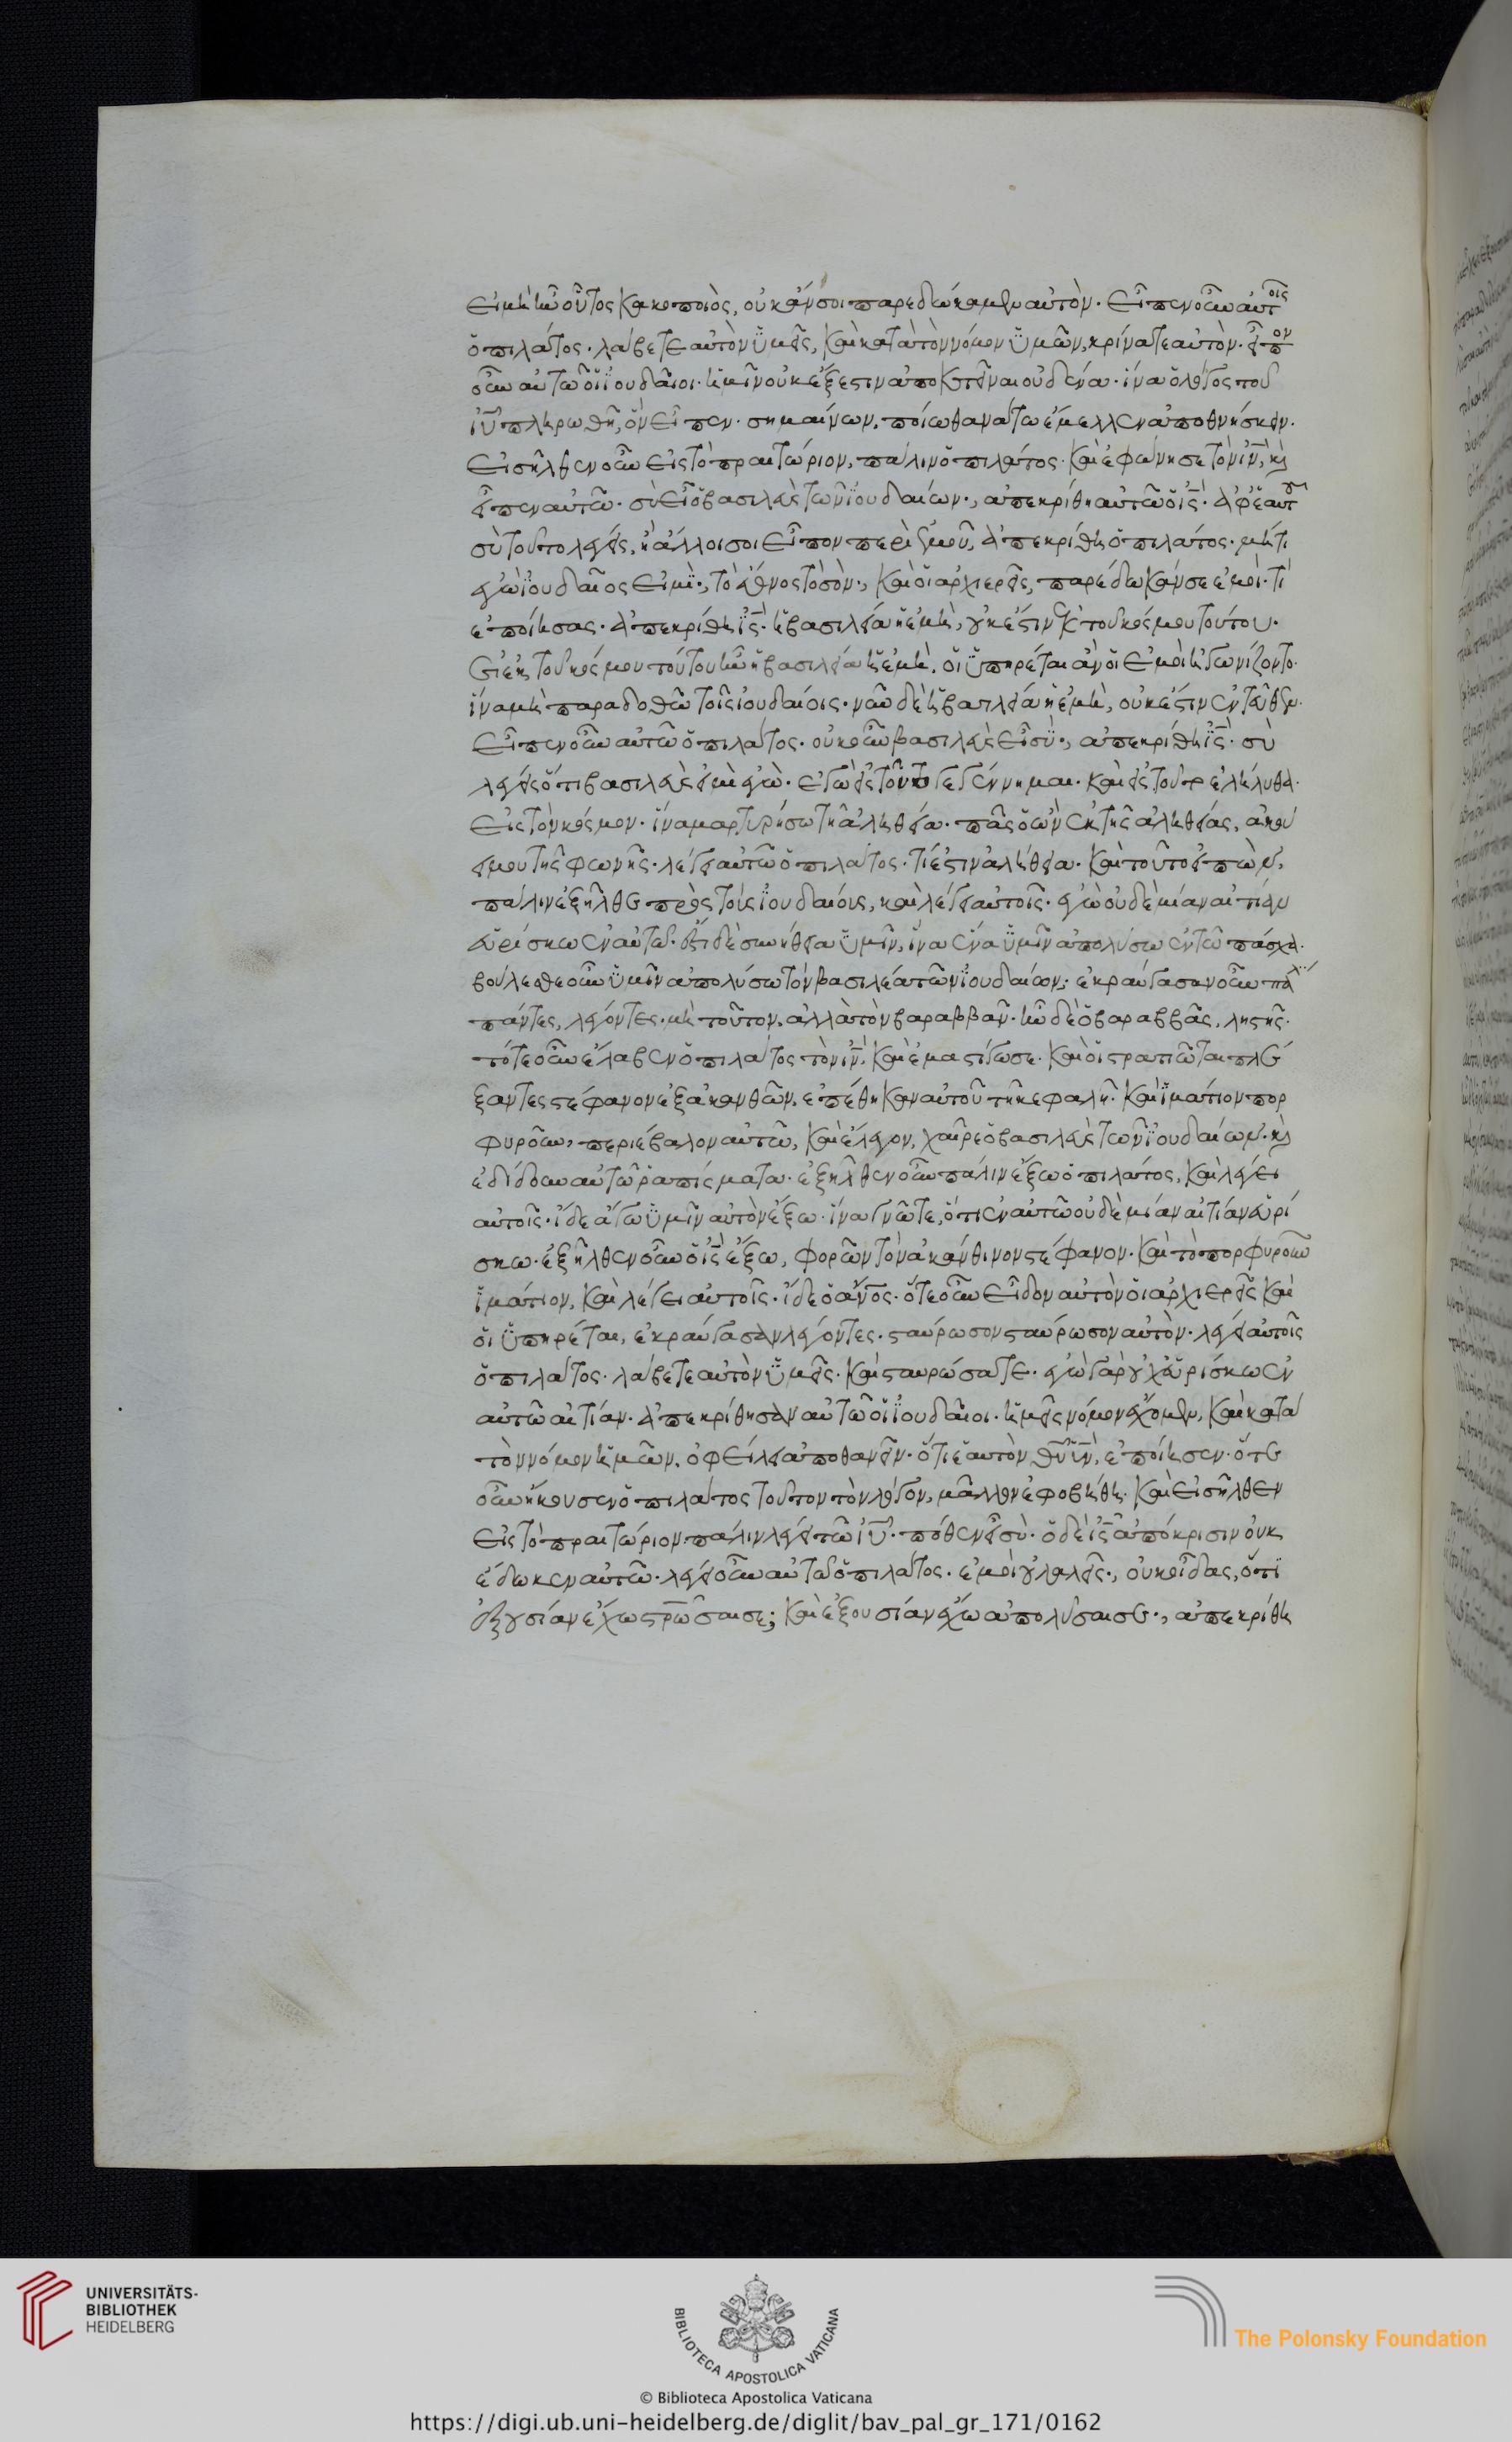 εἰ μὴ ἦν οὗτος κακοποιὸς, οὐκ ἄν σοι παρεδώκαμεν αὐτὸν. εἶπεν οὖν αὐτοῖς
ὁ πιλάτος. λάβετε αὐτὸν ὑμεῖς, καὶ κατὰ τὸν νόμον ὑμῶν, κρίνατε αὐτὸν. εἶπον
οὖν αὐτῶ οἱ ἰουδαῖοι. ἡμῖν οὐκ ἔξεστιν ἀποκτεῖναι οὐδένα. ἵνα ὁ λόγος τοῦ
ἰῦ πληρωθῆ, ὃν εἶπεν. σημαίνων, ποίω θανάτω ἔμελλεν ἀποθνήσκειν.
εἰσῆλθεν οὖν εἰς τὸ πραιτώριον, πάλιν ὁ πιλάτος. καὶ ἐφώνησε τὸν ἰν, κὶ
εἶπεν αὐτῶ. σὺ εἶ ὁ βασιλεὺς τῶν ἰουδαίων., ἀπεκρίθη αὐτῶ ὁ ἰς. ἀφ' ἑαυτοῦ
σὺ τοῦτο λέγεις, ἢ ἄλλοι σοι εἶπον περὶ ἐμοῦ, ἀπεκρίθη ὁ πιλάτος. μήτι
ἐγὼ ἰουδαῖος εἰμὶ., τὸ ἔθνος τὸ σὸν., καὶ οἱ ἀρχιερεῖς, παρέδωκάν σε ἐμοὶ. τί
ἐποίησας. ἀπεκρίθη ἰς. ἡ βασιλεία ἡ ἐμὴ, οὐκ ἔστιν ἐκ τοῦ κόσμου τούτου.
εἰ ἐκ τοῦ κόσμου τούτου ἦν ἡ βασιλεία ἡ ἐμὴ, οἱ ὑπηρέται ἀν οἱ ἐμοὶ ἠγωνίζοντο.
ἵνα μὴ παραδοθῶ τοῖς ἰουδαίοις. νῦν δὲ ἡ βασιλεία ἡ ἐμὴ, οὐκ ἔστιν ἐντεῦθεν.
εἶπεν οὖν αὐτῶ ὁ πιλάτος. οὐκοῦν βασιλεὺς εἶ σὺ., ἀπεκρίθη ἰς. σὺ
λέγεις ὅτι βασιλεὺς εἰμὶ ἐγὼ. ἐγὼ εἰς τοῦτο γεγέννημαι. καὶ εἰς τοῦτο ἐλήλυθα.
εἰς τὸν κόσμον. ἵνα μαρτυρήσω τῆ ἀληθεία. πᾶς ὁ ὢν ἐκ τῆς ἀληθείας, ἀκού
ει μου τῆς φωνῆς. λέγει αὐτῶ ὁ πιλάτος. τί ἐστιν ἀλήθεια. καὶ τοῦτο εἰπὼν,
πάλιν ἐξῆλθε πρὸς τοὺς ἰουδαίους, καὶ λέγει αὐτοῖς. ἐγὼ οὐδὲ μίαν αἰτίαν
εὑρίσκω ἐν αὐτῶ. ἔστι δὲ συνήθεια ὑμῖν, ἵνα ἕνα ὑμῖν ἀπολύσω ἐν τῶ πάσχα.
βούλεσθε οὖν ὑμῖν ἀπολύσω τὸν βασιλέα τῶν ἰουδαίων; ἐκραύγασαν οὖν πάλιν
πάντες, λέγοντες. μὴ τοῦτον, ἀλλὰ τὸν βαραββᾶν. ἦν δὲ ὁ βαραββᾶς, ληστής.
τότε οὖν ἔλαβεν ὁ πιλάτος τὸν ἰν, καὶ ἐμαστίγωσε. καὶ οἱ στρατιῶται πλέ
ξαντες στέφανον ἐξ ἀκανθῶν, ἐπέθηκαν αὐτοῦ τῆ κεφαλῆ. καὶ ἱμάτιον πορ
φυροῦν, περιέβαλον αὐτῶ, καὶ ἔλεγον, χαῖρε ὁ βασιλεὺς τῶν ἰουδαίων. κὶ
ἐδίδουν αὐτῶ ῥαπίσματα. ἐξῆλθεν οὖν πάλιν ἔξω ὁ πιλάτος, καὶ λέγει
αὐτοῖς. ἴδε ἄγω ὑμῖν αὐτὸν ἔξω. ἵνα γνῶτε, ὅτι ἐν αὐτῶ οὐδὲ μίαν αἰτίαν εὑρί
σκω. ἐξῆλθεν οὖν ὁ ἰς ἔξω, φορῶν τὸν ἀκάνθινον στέφανον. καὶ τὸ πορφυροῦν
ἱμάτιον, καὶ λέγει αὐτοῖς. ἴδε ὁ ἄνος. ὅτε οὖν εἶδον αὐτὸν οἱ ἀρχιερεῖς καὶ
οἱ ὑπηρέται, ἐκραύγασαν λέγοντες. σταύρωσον σταύρωσον αὐτὸν. λέγει αὐτοῖς
ὁ πιλάτος. λάβετε αὐτὸν ὑμεῖς. καὶ σταυρώσατε. ἐγὼ γὰρ οὐχ εὑρίσκω ἐν
αὐτῶ αἰτίαν. ἀπεκρίθησαν αὐτῶ οἱ ἰουδαῖοι. ἡμεῖς νόμον ἔχομεν, καὶ κατὰ
τὸν νόμον ἡμῶν, ὀφείλει ἀποθανεῖν. ὅτι ἑαυτὸν θῦ ὑν, ἐποίησεν. ὅτε
οὖν ἤκουσεν ὁ πιλάτος τοῦτον τὸν λόγον, μᾶλλον ἐφοβήθη. καὶ εἰσῆλθεν
εἰς τὸ πραιτώριον πάλιν λέγει τῶ ἰῦ. πόθεν εἶ σὺ. ὁ δὲ ἰς ἀπόκρισιν οὐκ
ἔδωκεν αὐτῶ. λέγει οὖν αὐτῶ ὁ πιλάτος. ἐμοὶ οὐ λαλεῖς., οὐκ οἶδας, ὅτι
ἐξουσίαν ἔχω στρῶσαι σε; καὶ ἐξουσίαν ἔχω ἀπολῦσαι σε., ἀπεκρίθη
UNIVERSITÄTS-
BIBLIOTHEK
HEIDELBERG
BIBLIOTECA APOSTOLICA VATICANA
The Polonsky Foundation
© Biblioteca Apostolica Vaticana
https://digi.ub.uni-heidelberg.de/diglit/bav_pal_gr_171/0162